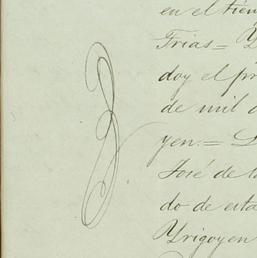 en el tien
Frias =
doy el pr
de mil
yen. =
José de l
do de esta
Yrigoyen